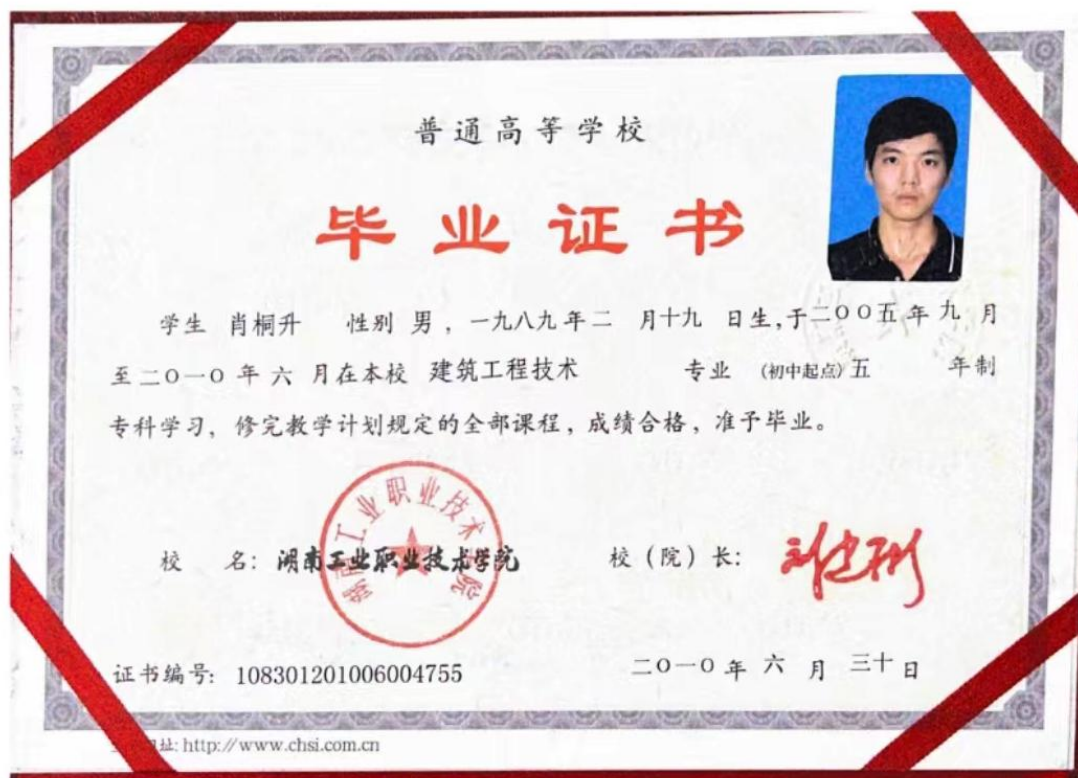 普通高等学校
毕业证书
学生 肖桐升 性别 男，一九八九年二 月十九 日生，于二〇〇五年九 月
至二〇一〇 年 六 月在本校 建筑工程技术 专业 (初中起点)五 年制
专科学习，修完教学计划规定的全部课程，成绩合格，准予毕业。
湖南工业职业技术学院
校 名：湖南工业职业技术学院 校（院）长：
证书编号：108301201006004755 二〇一〇 年 六 月 三十 日
网址: http://www.chsi.com.cn